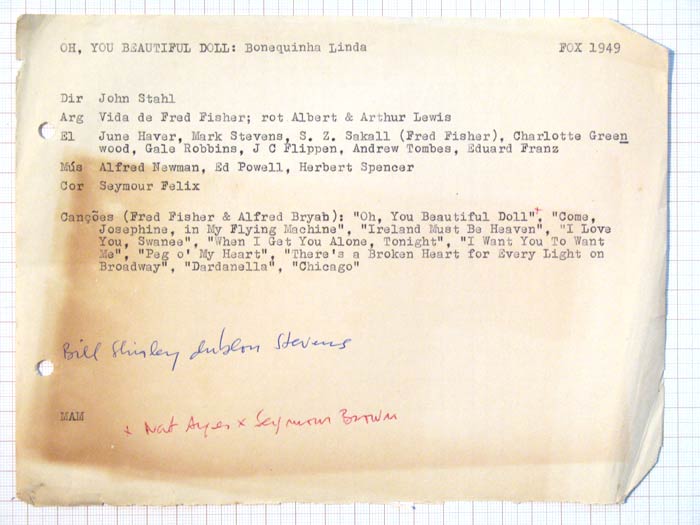 OH, YOU BEAUTIFUL DOLL: Bonequinha Linda FOX 1949
Dir John Stahl
Arg Vida de Fred Fisher; rot Albert & Arthur Lewis
El June Haver, Mark Stevens, S. Z. Sakall (Fred Fisher), Charlotte Green
wood, Gale Robbins, J C Flippen, Andrew Tombes, Eduard Franz
Mús Alfred Newman, Ed Powell, Herbert Spencer
Cor Seymour Felix
Canções (Fred Fisher & Alfred Bryab): "Oh, You Beautiful Doll"+, "Come,
Josephine, in My Flying Machine", "Ireland Must Be Heaven", "I Love
You, Swanee", "When I Get You Alone, Tonight", "I Want You To Want
Me", "Peg o' My Heart", "There's a Broken Heart for Every Light on
Broadway", "Dardanella", "Chicago"
Bill Shirley dublou Stevens
MAM
+ Nat Ayer x Seymour Brown